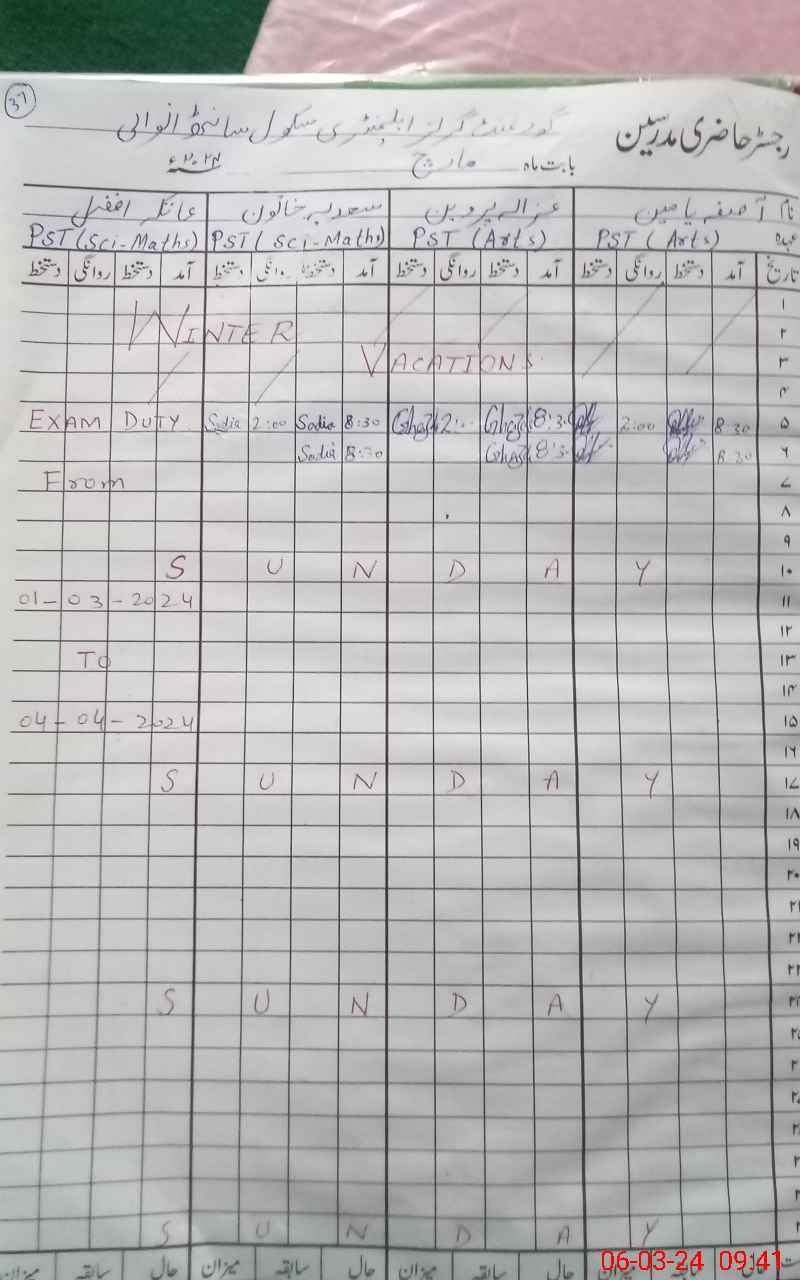 37
رجسٹر حاضری مدرسین گورنمنٹ گرلز ایلیمنٹری سکول
بابت ماہ مارچ ۲۰۲۴ء
نام آصفہ یاسمین غزالہ پروین سعدیہ خاتون
عہدہ PST (Arts) PST (Arts) PST (Sci-Maths) PST (Sci-Maths)
تاریخ آمد دستخط روانگی دستخط آمد دستخط روانگی دستخط آمد دستخط روانگی دستخط آمد دستخط روانگی دستخط
۱
۲ WINTER
۳ VACATIONS
۴
۵ 8:30 2:00 8:3 2: 8:30 Sadia 2:00 Sadia EXAM DUTY
۶ 8:30 8:3 8:30 Sadia
۷ From
۸
۹
۱۰ SUNDAY
۱۱ 01-03-2024
۱۲
۱۳ TO
۱۴
۱۵ 04-04-2024
۱۶
۱۷ SUNDAY
۱۸
۱۹
۲۰
SUNDAY
SUNDAY
حال سابقہ میزان حال سابقہ میزان حال سابقہ میزان
06-03-24 09:41